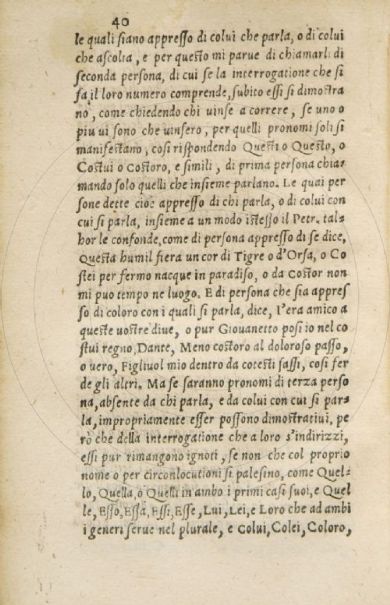 40
le quali siano appresso di colui che parla, o di colui
che ascolta, e per questo mi parue di chiamarli di
seconda persona, di cui se la interrogatione che si
fa, il loro numero comprende, subito essi si dimostra
no, come chiedendo chi uinse a correre, se uno o
piu ui sono che uinsero, per quelli pronomi soli si
manifestano, cosi rispondendo Questi o Questo, o
Costui o Costoro, e simili, di prima persona chia-
mando solo quelli che insieme parlano. Le quai per
sone dette cioè appresso di chi parla, o di colui con
cui si parla, insieme a un modo istesso il Petr. tal-
hor le confonde, come di persona appresso di se dice,
Questa humil fiera un cor di Tigre o d'Orsa, o Co
stei per fermo nacque in paradiso, o da Costor non
mi puo tempo ne luogo. E di persona che sia appres
so di coloro con i quali si parla, dice, I'era amico a
queste uostre diue, o pur Giouanetto posi io nel co
stui regno, Dante, Meno costoro al doloroso passo,
o uero, Figliuol mio dentro da cotesti sassi, cosi fer
de gli altri. Ma se saranno pronomi di terza perso
na, absente da chi parla, e da colui con cui si par-
la, impropriamente esser possono dimostratiui, pe
rò che della interrogatione che a loro s'indirizzi,
essi pur rimangono ignoti, se non che col proprio
nome o per circonlocutioni si palesino, come Quel-
lo, Quella, o Quelli in ambo i primi casi suoi, e Quel
le, Esso, Essa, Essi, Esse, Lui, Lei, e Loro che ad ambi
i generi serue nel plurale, e Colui, Colei, Coloro,